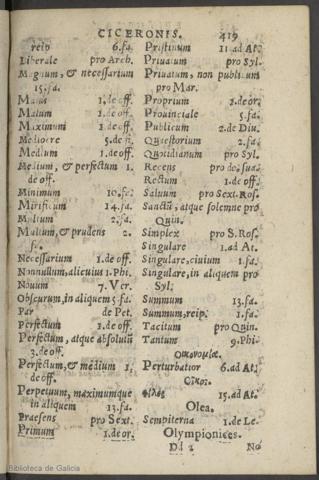 CICERONIS. 419
reip 6.fa.
Liberale pro Arch.
Magnum, & necessarium
15.fa.
Maius 1.de off.
Malum 1.de off.
Maximum 1.de off.
Mediocre 5.de fi.
Medium 1.de off.
Medium, & perfectum 1.
de off.
Minimum 10.fa.
Mirificum 14.fa.
Multum 2.fa.
Multum, & prudens 2.
fi.
Necessarium 1.de off.
Nonnullum, alicuius 1.Phi.
Nouum 7.Ver.
Obscurum, in aliquem 5.fa.
Par de Pet.
Perfectum 1.de off.
Perfectum, atque absolutū
3.de off.
Perfectum, & medium 1.
de off.
Perpetuum, maximumque
in aliquem 13.fa.
Praesens pro Sext.
Primum 1.de or.
Pristinum 11.ad At.
Priuatum pro Syl.
Priuatum, non publicum
pro Mar.
Proprium 1.de or.
Prouinciale 5.fa.
Publicum 2.de Diu.
Quaestorium 2.fa.
Quotidianum pro Syl.
Recens pro do. sua.
Rectum 1.de off.
Saluum pro Sext. Ros.
Sanctū, atque solemne pro
Quin.
Simplex pro S.Ros.
Singulare 1.ad At.
Singulare, ciuium 1.fa.
Singulare, in aliquem pro
Syl.
Summum 13.fa.
Summum, reip. 1.fa.
Tacitum pro Quin.
Tantum 9.Phi.
Perturbatior 6.ad At.
15.ad At.
Olea.
Sempiterna 1.de Le.
Olympionices.
Dd 2 No
Biblioteca de Galicia